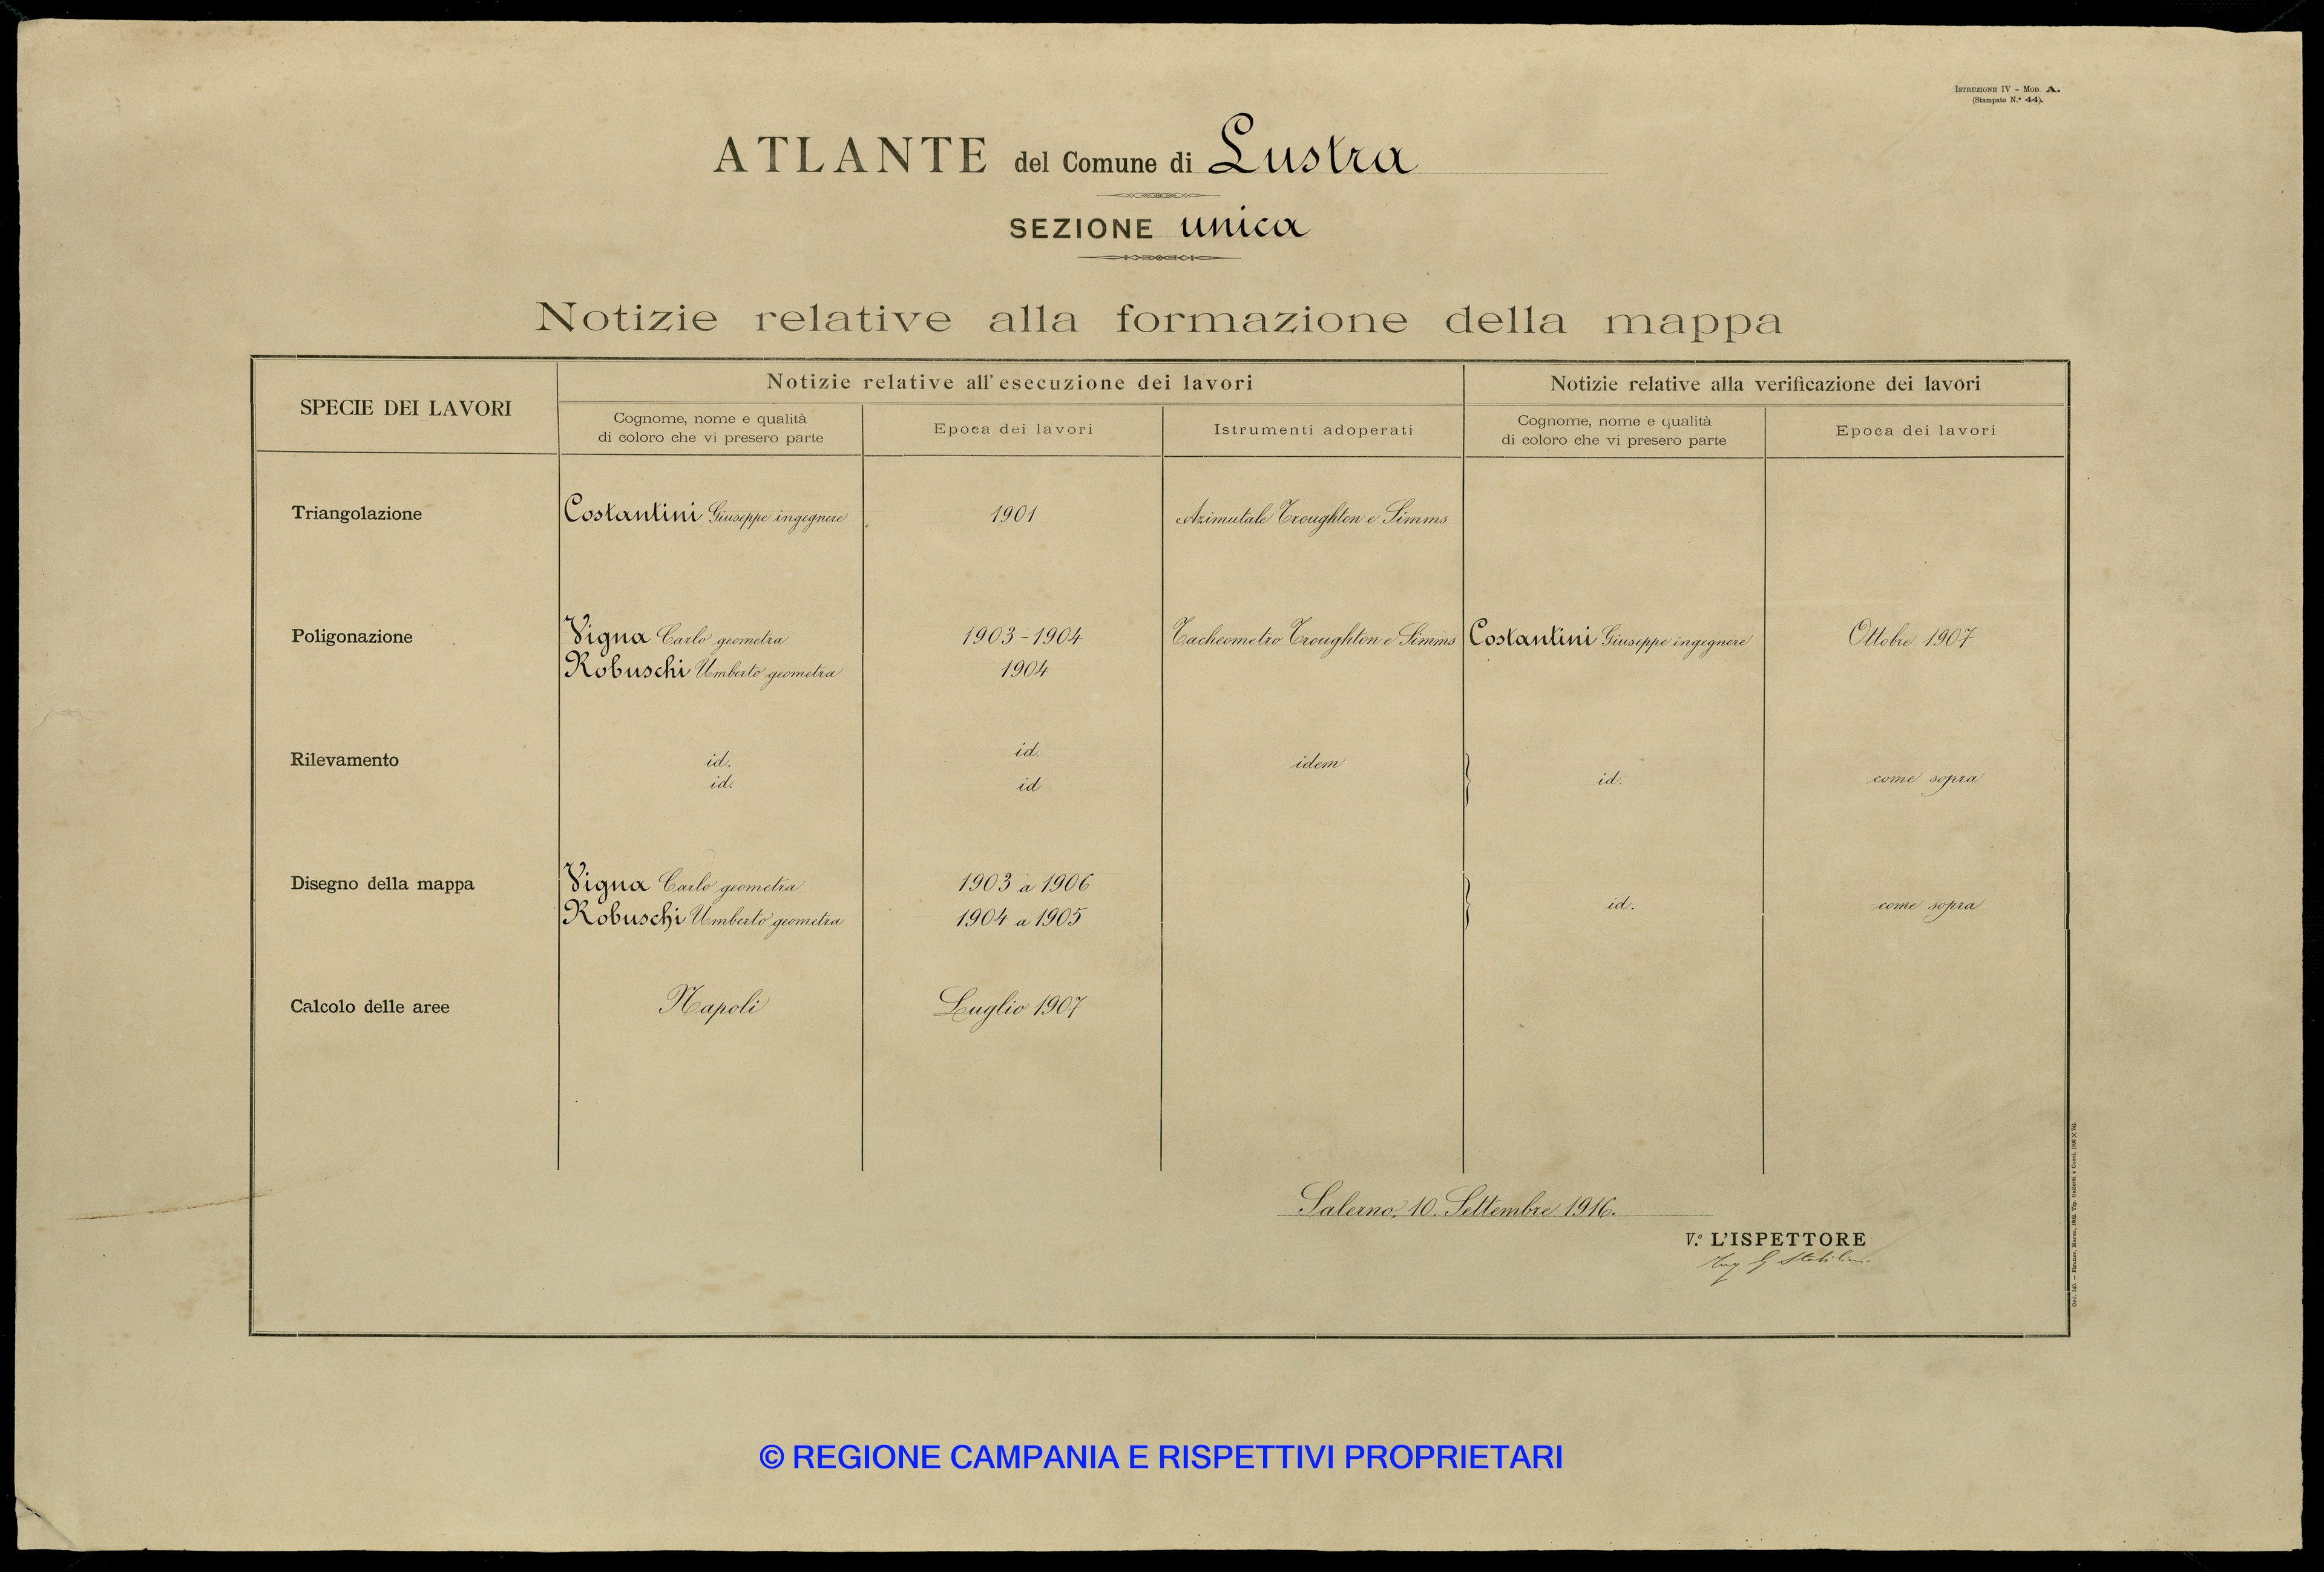 ISTRUZIONE IV - MOD. A.
(Stampato N.° 44).
ATLANTE del Comune di Lustra
SEZIONE unica
Notizie relative alla formazione della mappa
SPECIE DEI LAVORI
Notizie relative all'esecuzione dei lavori
Notizie relative alla verificazione dei lavori
Cognome, nome e qualità
di coloro che vi presero parte
Epoca dei lavori
Istrumenti adoperati
Cognome, nome e qualità
di coloro che vi presero parte
Epoca dei lavori
Triangolazione
Costantini Giuseppe ingegnere
1901
Azimutale Troughton e Simms
Poligonazione
Vigna Carlo geometra
1903-1904
Tacheometro Troughton e Simms
Costantini Giuseppe ingegnere
Ottobre 1907
Robuschi Umberto geometra
1904
Rilevamento
id.
id.
idem
id.
come sopra
id.
id
Disegno della mappa
Vigna Carlo geometra
1903 a 1906
id.
come sopra
Robuschi Umberto geometra
1904 a 1905
Calcolo delle aree
Napoli
Luglio 1907
Salerno, 10. Settembre 1916.
V.° L'ISPETTORE
Ing G
© REGIONE CAMPANIA E RISPETTIVI PROPRIETARI